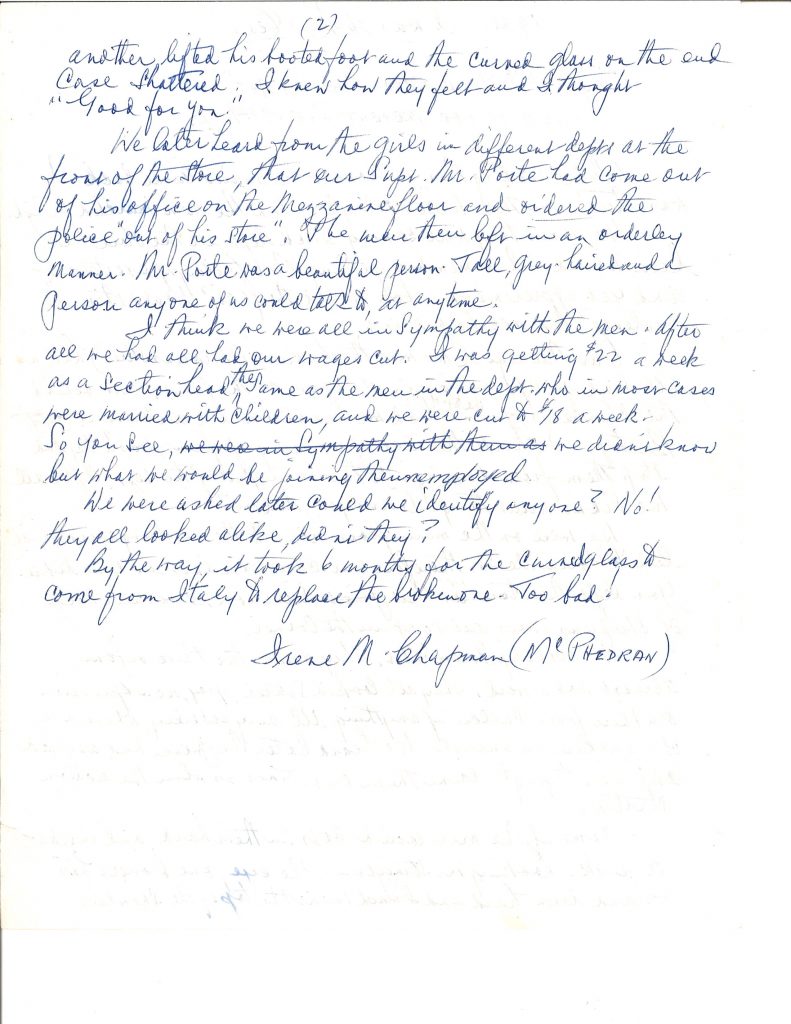 (2)
another, lifted his booted foot and the curved glass on the end
case shattered. I knew how they felt and I thought
"Good for you."
We later heard from the girls in different depts at the
front of the store, that our Supt. Mr. Poste had come out
of his office on the Mezzanine floor and ordered the
police "out of his store". The men then left in an orderley
manner. Mr. Poste was a beautiful person. Tall, grey-haired and a
person anyone of us could talk to, at anytime.
I think we were all in sympathy with the men. After
all we had all had our wages cut. I was getting $22 a week
as a section head, the same as the men in the dept. who in most cases
were married with children, and we were cut to $18 a week.
So you see, we were in sympathy with them as we didn't know
but what we would be joining the unemployed
We were asked later could we identify anyone? No!
they all looked alike, didn't they?
By the way, it took 6 months for the curved glass to
come from Italy to replace the broken one. Too bad!
Irene M. Chapman (McPHEDRAN)